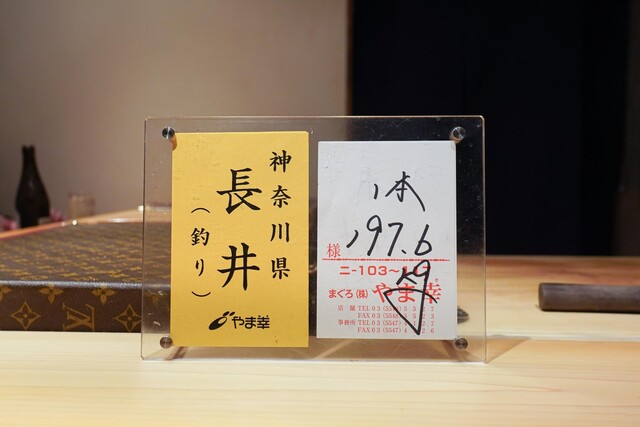 神奈川県
長井
（釣り）
やま幸
1本
197.6
様
ニ-103~10
まぐろ(株)やま幸
店舗 TEL03
FAX03
事務所 TEL03(5547)
FAX03(5547)